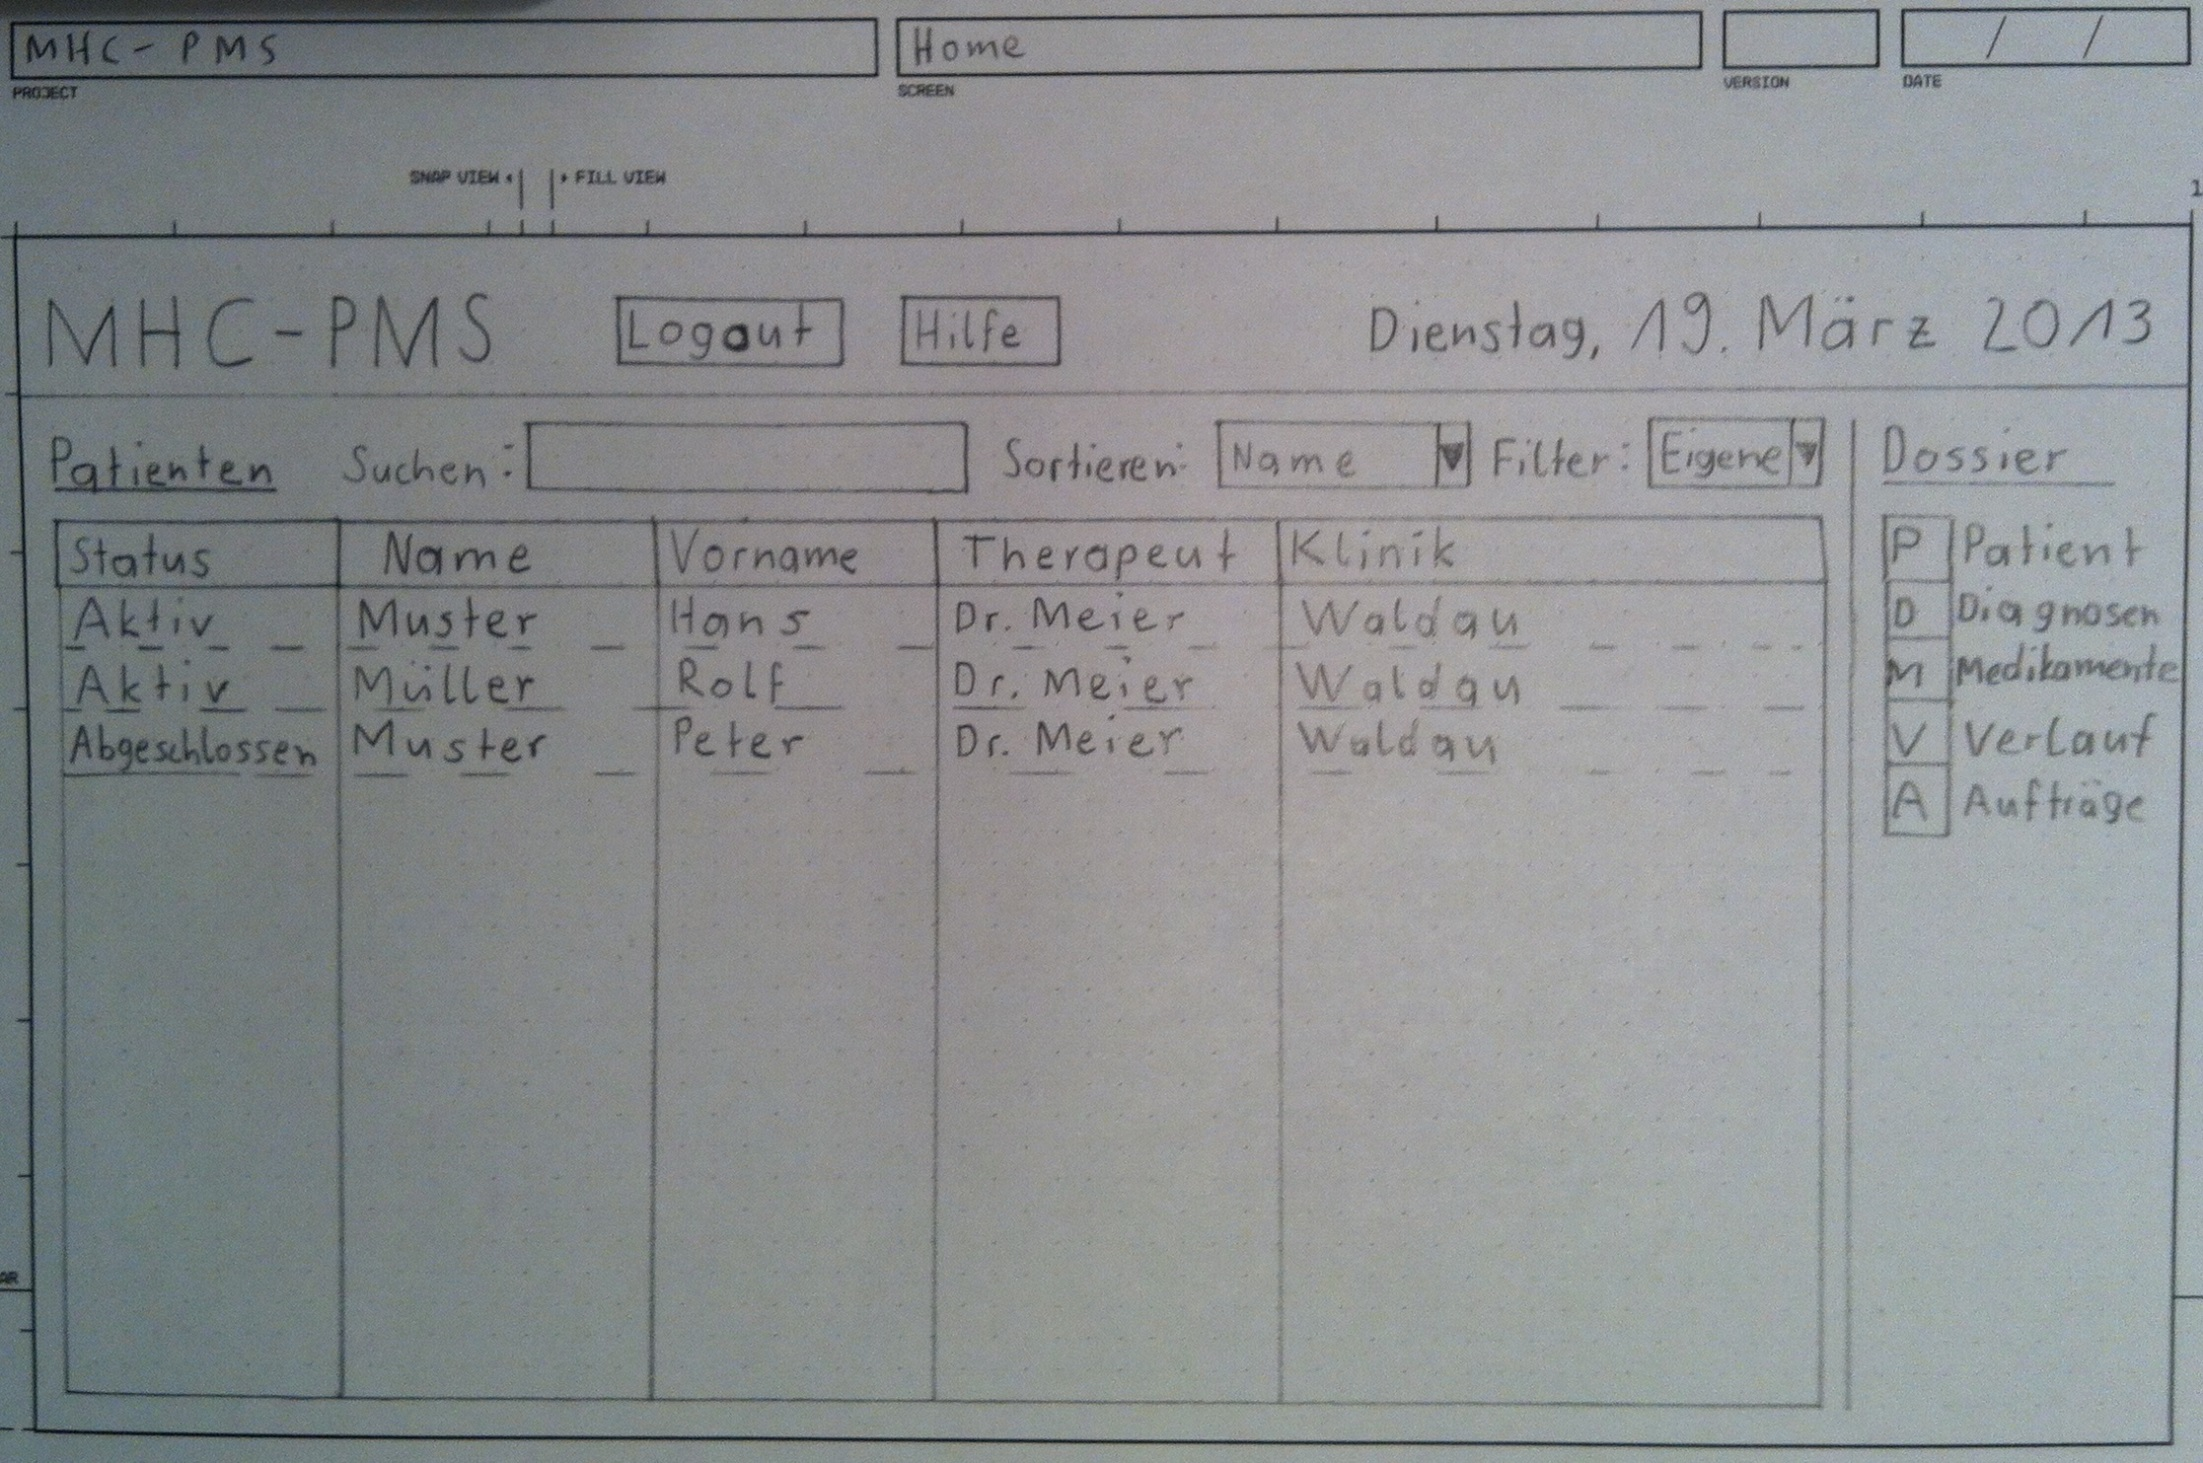 MHC- PMS
Home
/ /
PROJECT
SCREEN
VERSION
DATE
SNAP VIEW
FILL VIEW
1
MHC-PMS Logout Hilfe Dienstag, 19. März 2013
Patienten Suchen: Sortieren: Name Filter: Eigene
Status Name Vorname Therapeut Klinik
Aktiv Muster Hans Dr. Meier Waldau
Aktiv Müller Rolf Dr. Meier Waldau
Abgeschlossen Muster Peter Dr. Meier Waldau
Dossier
P Patient
D Diagnosen
M Medikamente
V Verlauf
A Aufträge
AR